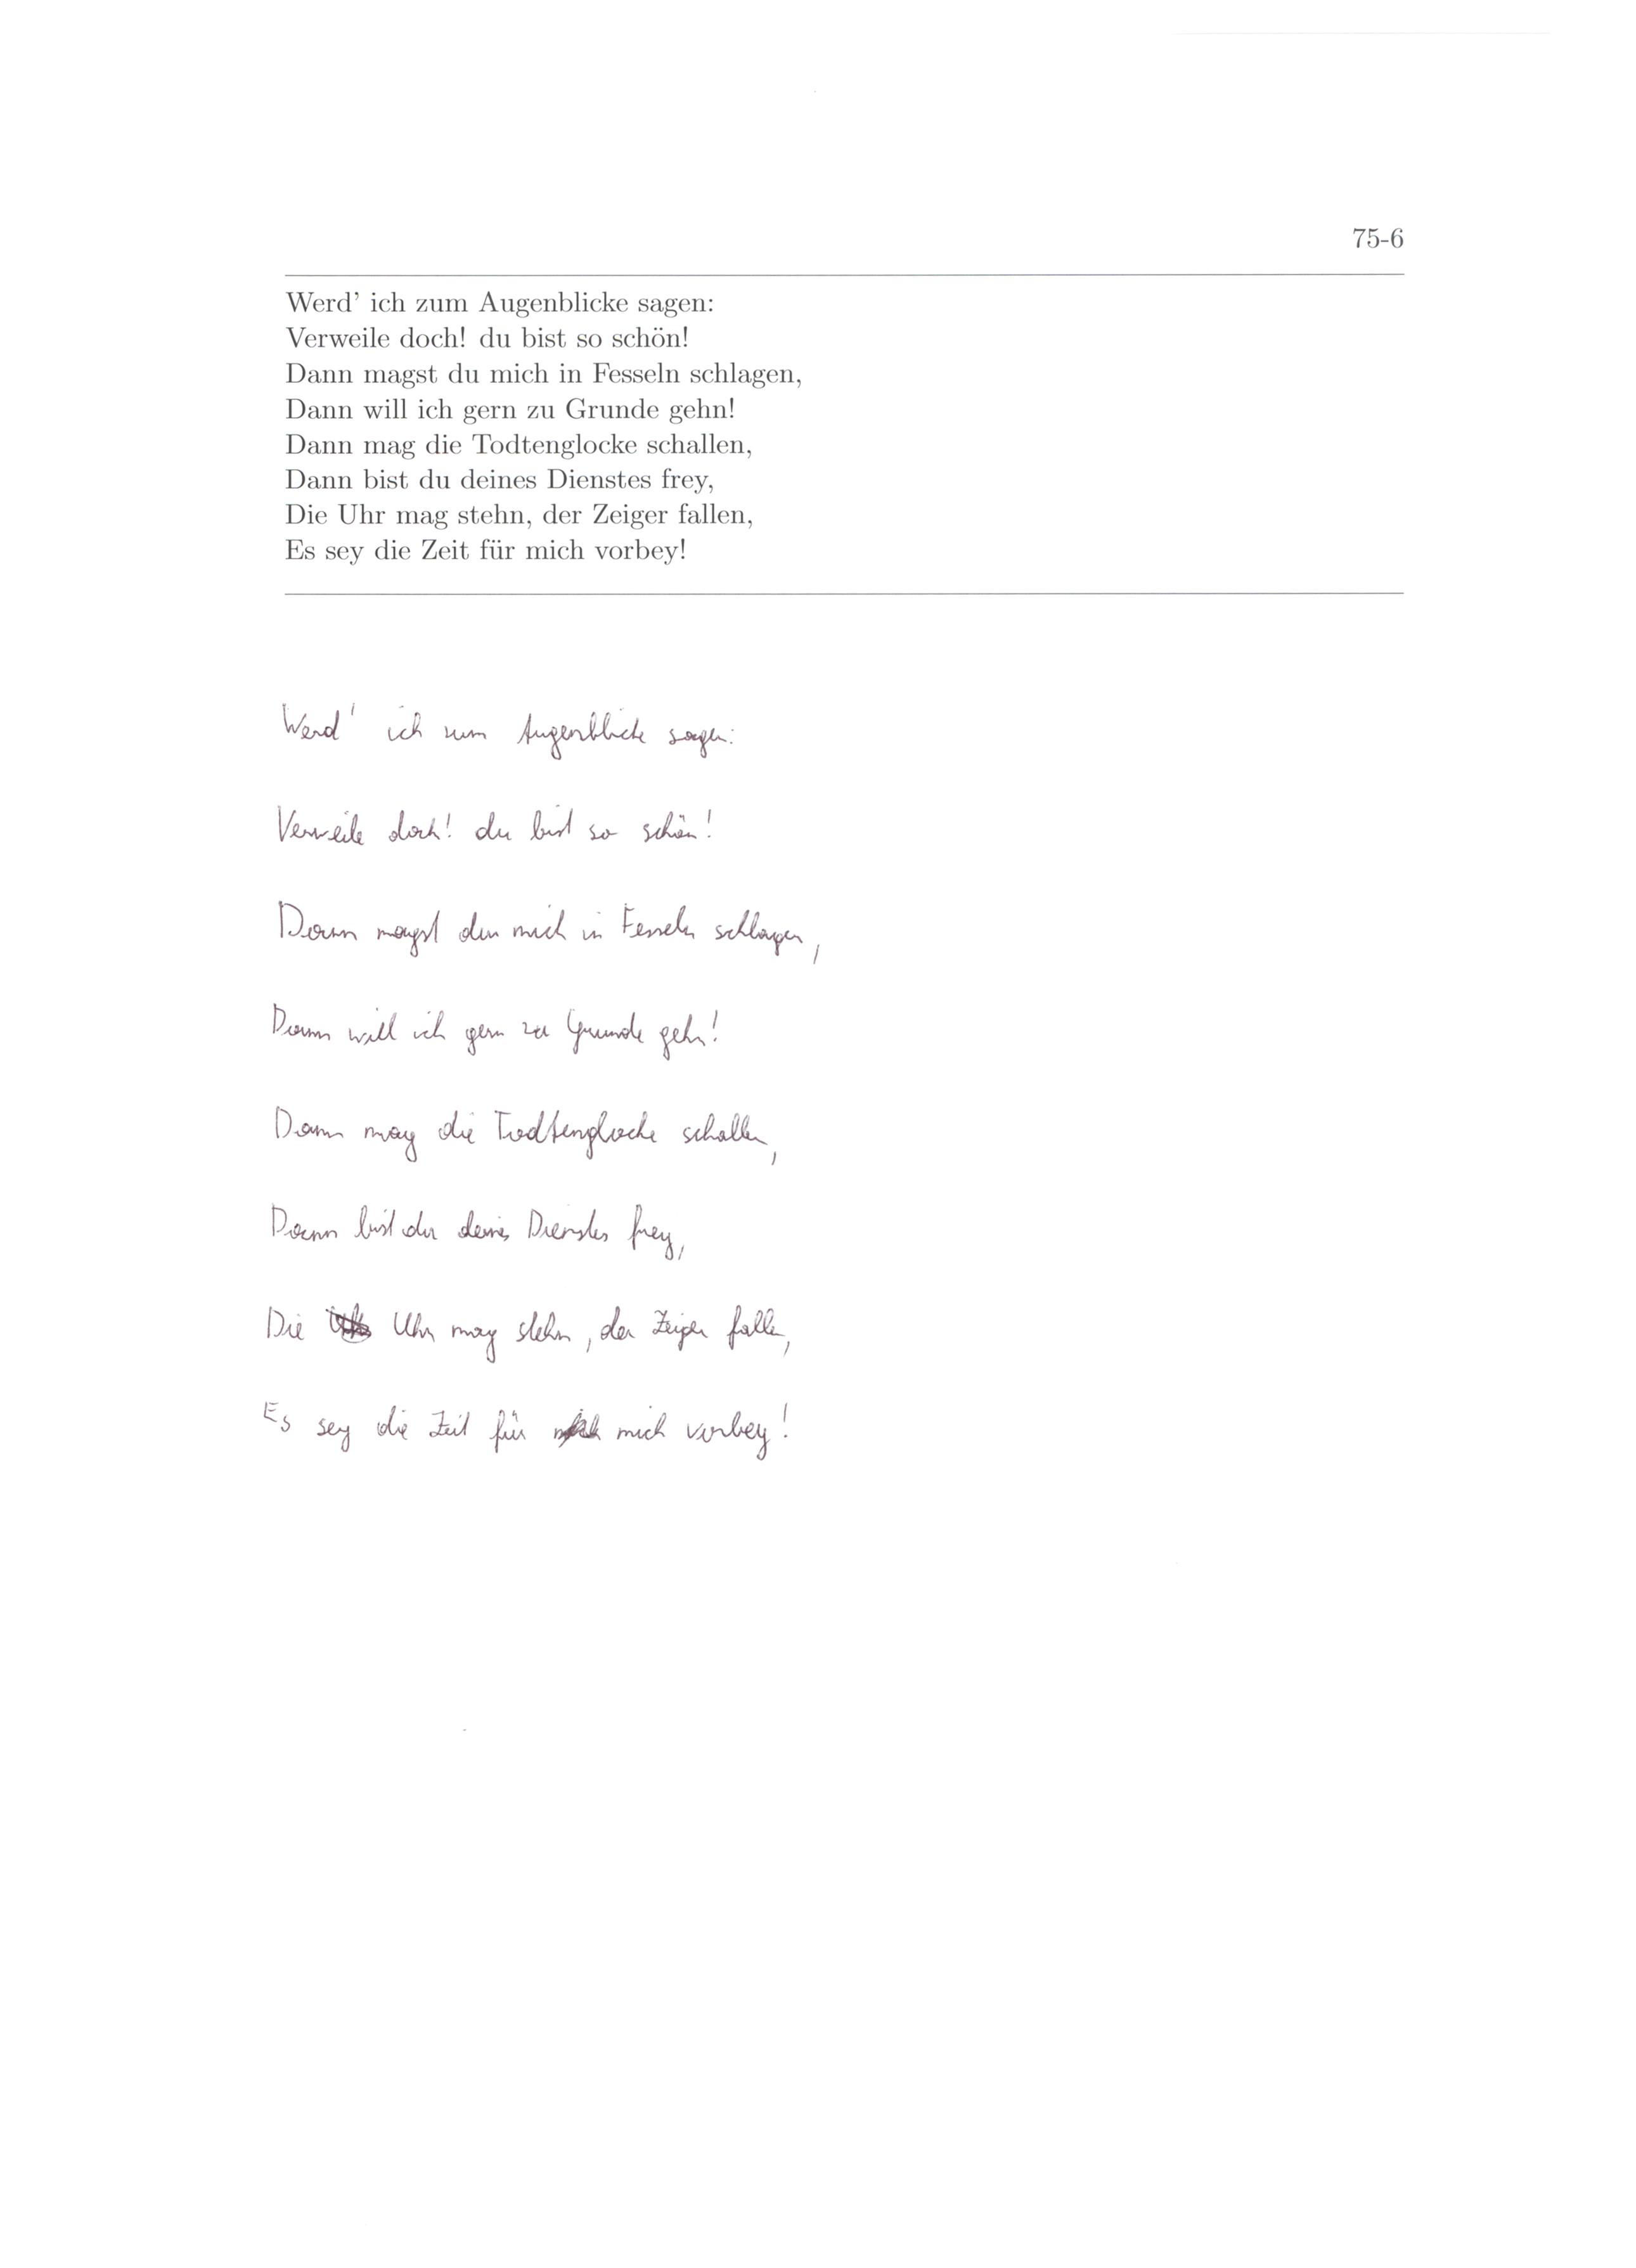 75-6
Werd' ich zum Augenblicke sagen:
Verweile doch! du bist so schön!
Dann magst du mich in Fesseln schlagen,
Dann will ich gern zu Grunde gehn!
Dann mag die Todtenglocke schallen,
Dann bist du deines Dienstes frey,
Die Uhr mag stehn, der Zeiger fallen,
Es sey die Zeit für mich vorbey!
Werd' ich zum Augenblicke sagen:
Verweile doch! du bist so schön!
Dann magst du mich in Fesseln schlagen,
Dann will ich gern zu Grunde gehn!
Dann mag die Todtenglocke schallen,
Dann bist du deines Dienstes frey,
Die Uhr mag stehn, der Zeiger fallen,
Es sey die Zeit für mich vorbey!